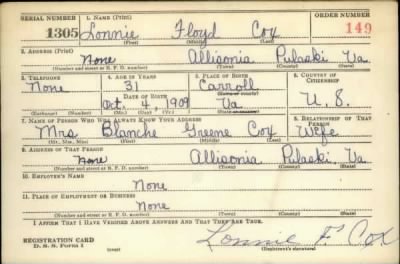 SERIAL NUMBER 1. NAME (Print) ORDER NUMBER
1305 Lonnie Floyd Cox 149
(First) (Middle) (Last)
2. ADDRESS (Print)
None Allisonia Pulaski Va
(Number and street or R. F. D. number) (Town) (County) (State)
3. TELEPHONE 4. AGE IN YEARS 5. PLACE OF BIRTH 6. COUNTRY OF CITIZENSHIP
None 31 Carroll
(Town or county)
DATE OF BIRTH
Oct. 4, 1909 Va U. S.
(Exchange) (Number) (Mo.) (Day) (Yr.) (State or country)
7. NAME OF PERSON WHO WILL ALWAYS KNOW YOUR ADDRESS 8. RELATIONSHIP OF THAT PERSON
Mrs Blanche Greene Cox Wife
(Mr., Mrs., Miss) (First) (Middle) (Last)
9. ADDRESS OF THAT PERSON
None Allisonia Pulaski Va
(Number and street or R. F. D. number) (Town) (County) (State)
10. EMPLOYER'S NAME
None
11. PLACE OF EMPLOYMENT OR BUSINESS
None
(Number and street or R. F. D. number) (Town) (County) (State)
I AFFIRM THAT I HAVE VERIFIED ABOVE ANSWERS AND THAT THEY ARE TRUE.
REGISTRATION CARD Lonnie F. Cox
D. S. S. Form 1 (over) (Registrant's signature)